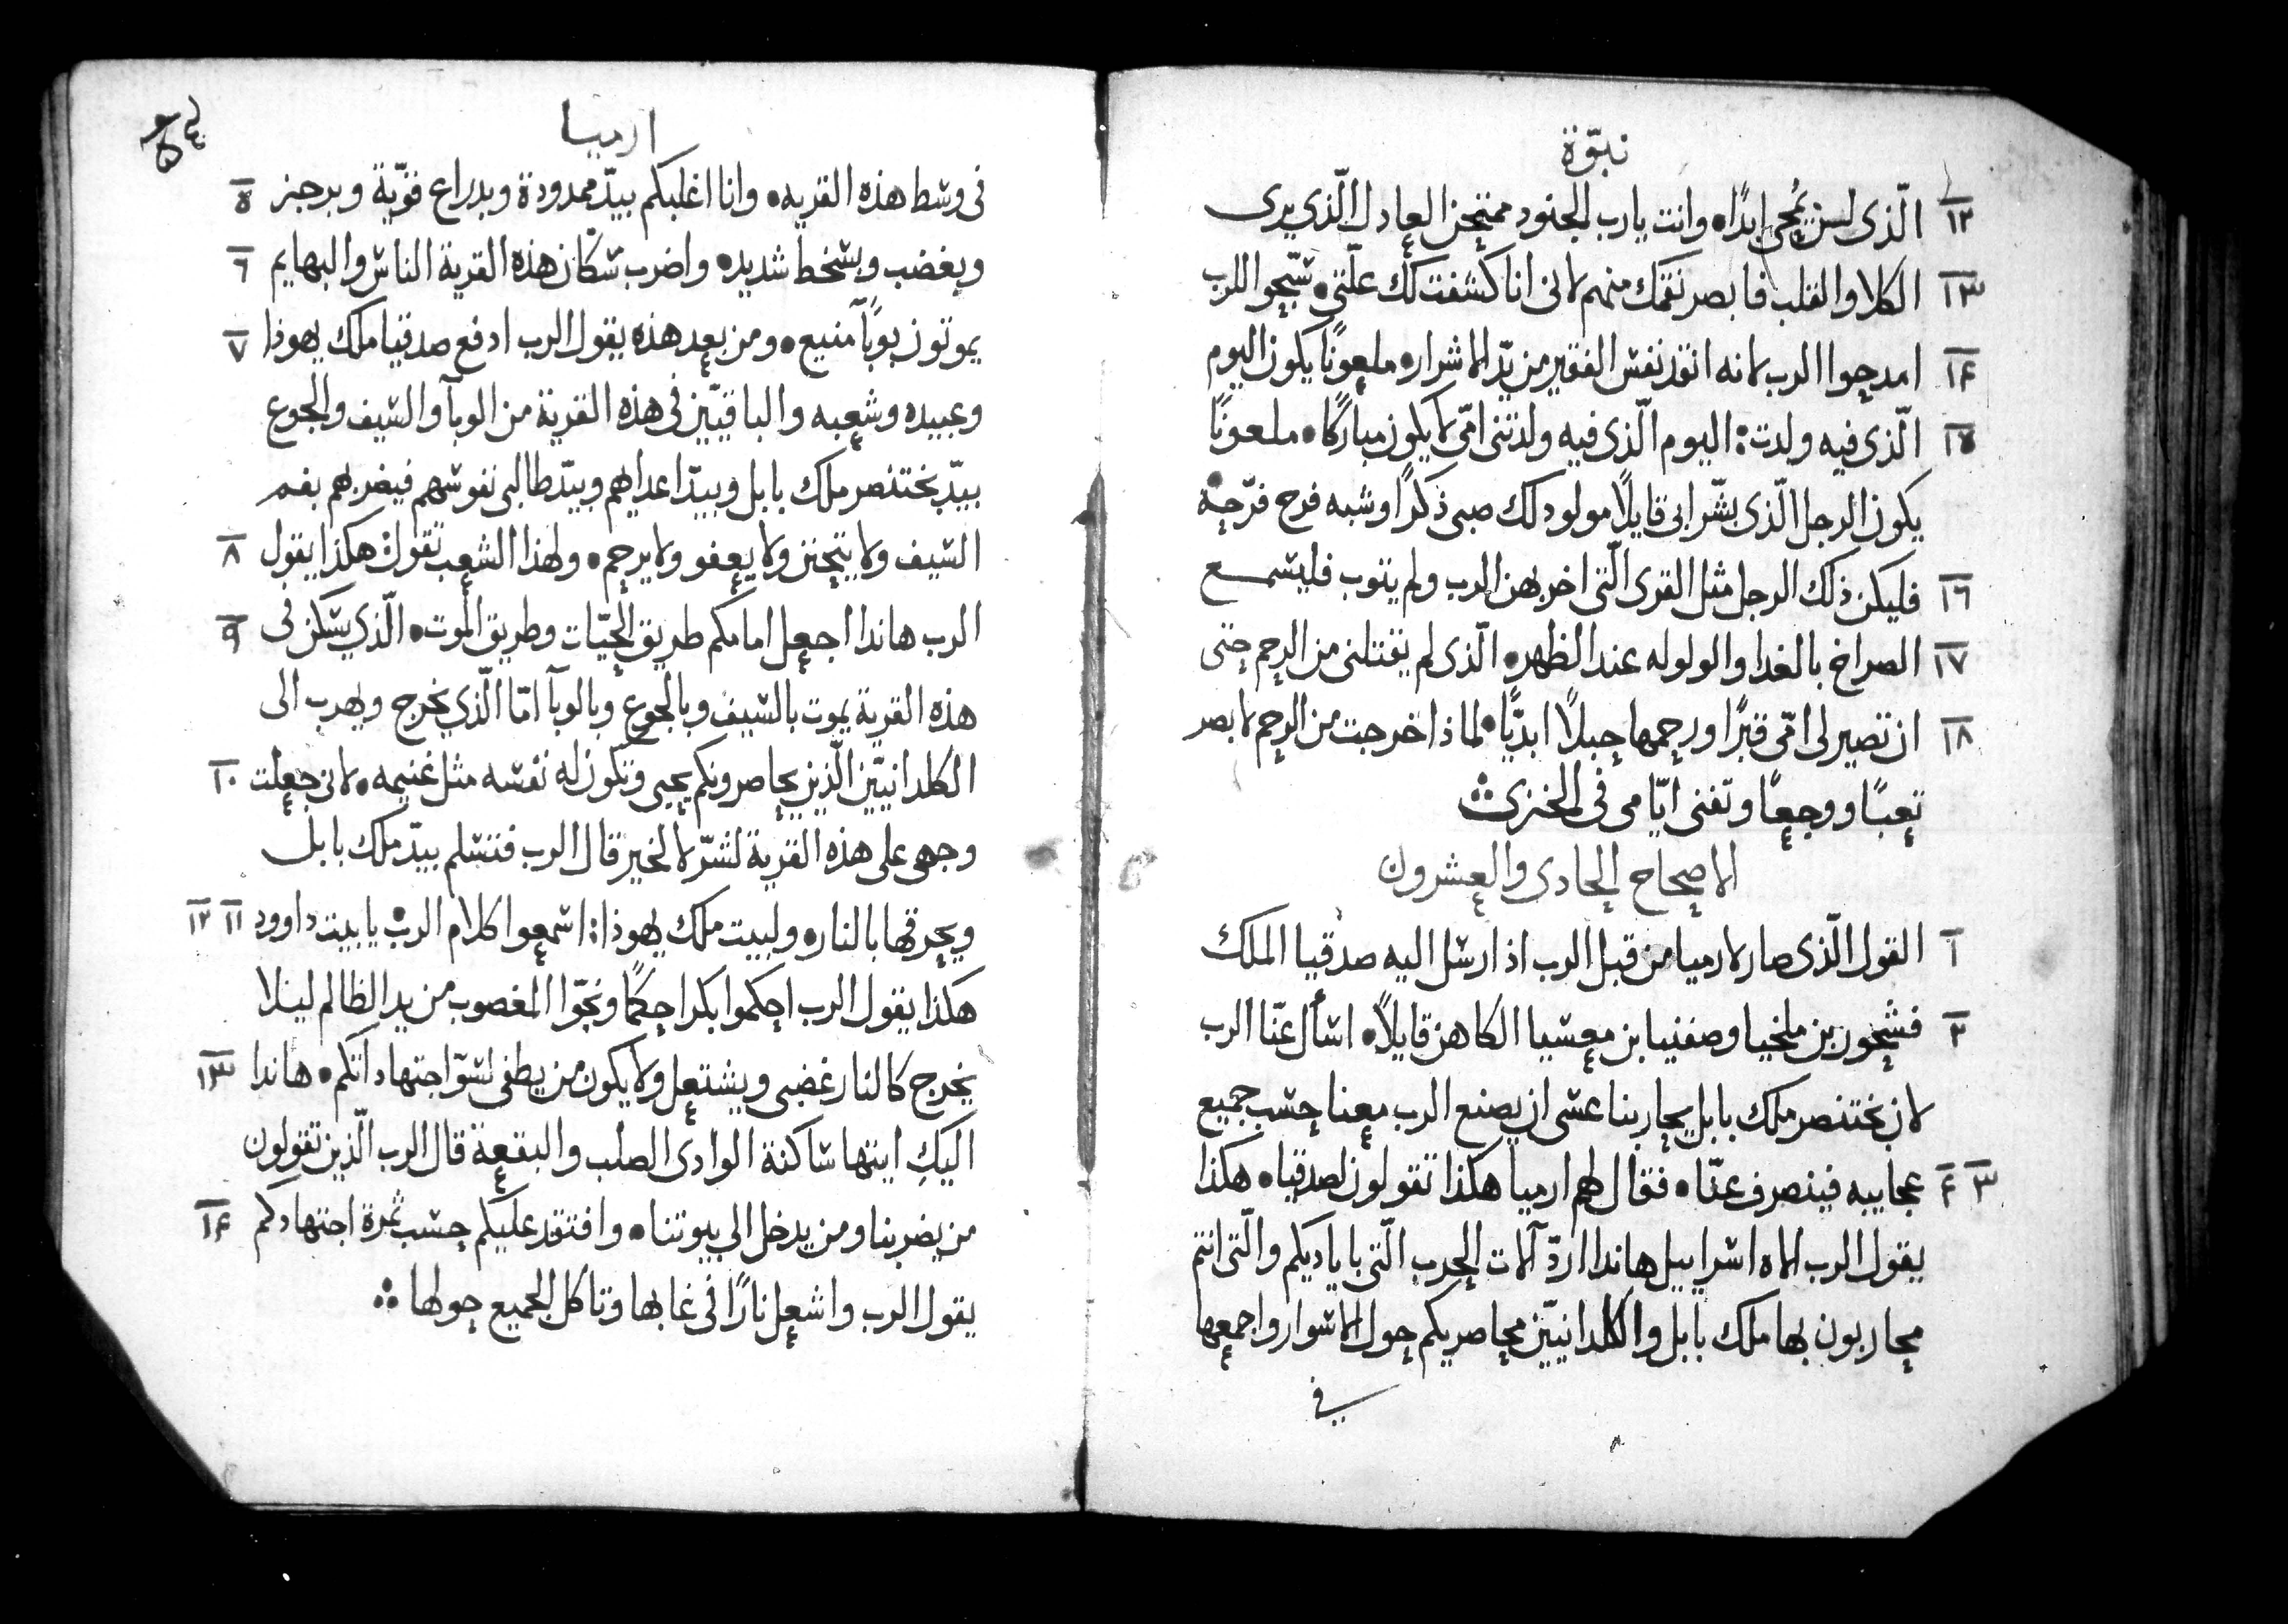 نبوّة
١٢ الّذى لن يُمحى ابدًا. وانت يارب الجنود ممتحن العادل الّذي يرى
١٣ الكلا والقلب فابصر نقمتك منهم لانى انا كشفت لك علّتى. سبّحوا للرب
١٤ امدحوا الرب لانه انقذ نفس الفقير من يدّ الاشرار. ملعونًا يكون اليوم
١٥ الّذى فيه ولدت: اليوم الّذى فيه ولدتنى امّى لا يكون مباركًا. ملعونًا
يكون الرجل الّذى بشّر ابى قايلاً مولود لك صبى ذكرًا وشبه فرح فرّحه.
١٦ فليكن ذلك الرجل مثل القرى الّتى اخربهن الرب ولم يتوب فليسمع
١٧ الصراخ بالغدا والولوله عند الظهر. الّذى لم يقتلنى من الرحم حتى
١٨ ان تصير لى امّى قبرًا ورحمها حبلاً ابديًّا. لماذا خرجت من الرحم لابصر
تعبًا ووجعًا وتفنى ايّامى فى الخزى
الاصحاح الحادى والعشرون
١ القول الّذى صار لارميا من قبل الرب اذ ارسل اليه صدقيا الملك
٢ فشحور بن ملخيا وصفنيا بن معسيا الكاهن قايلاً. اسأل عنّا الرب
لان بختنصر ملك بابل يحاربنا عسى ان يصنع الرب معنا حسب جميع
٣ ٤ عجايبه فينصرف عنّا. فقال لهم ارميا هكذا تقولون لصدقيا. هكذا
يقول الرب الاه اسراييل هاندا اردّ آلات الحرب الّتى باياديكم والّتى انتم
محاربون بها ملك بابل والكلدانيّين محاصريكم حول الاسوار واجمعها
فى
ارميا
٥ فى وسط هذه القريه. وانا اغلبكم بيدّ ممدودة وبدراع قوّية وبرجز
٦ وبغضب وبسخط شديد. واضرب سكان هذه القرية الناس والبهايم
٧ يموتون بوبًا منيع. ومن بعد هذه يقول الرب ادفع صدقيا ملك يهوذا
وعبيده وشعبه والباقيّين فى هذه القرية من الوبآ والسيف والجوع
بيدّ بختنصر ملك بابل وبيدّ اعدايهم وبيدّ طالبى نفوسهم فيضربهم بفم
٨ السيف ولا يتحنن ولا يعفو ولا يرحم. ولهذا الشعب تقول: هكذا يقول
٩ الرب هاندا اجعل امامكم طريق الحيّات وطريق الموت. الّذي يسكن فى
هذه القرية يموت بالسيف وبالجوع وبالوبآ امّا الّذي يخرج ويهرب الى
١٠ الكلدانيّين الّذين يحاصرونكم يحيى وتكون له نفسه مثل غنيمه. لانى جعلت
وجهى على هذه القرية لشرّ لا لخير قال الرب فتسلم بيدّ ملك بابل
١١ ١٢ ويحرقها بالنار. ولبيت ملك يهوذا: اسمعوا كلام الرب. يا بيت داوود
هكذا يقول الرب احكموا بكرا حكمًا ونجّوا المغصوب من يد الظالم ليلا
١٣ يخرج كالنار غضبى ويشتعل ولا يكون من يطفى لسوّ اجتهاداتكم. هاندا
اليكِ ايتها ساكنة الوادى الصلب والبقعة قال الرب الّذين تقولون
١٤ من يضربنا ومن يدخل الي بيوتنا. وافتقد عليكم حسب ثمرة اجتهادكم
يقول الرب واشعل نارًا فى غابها وتاكل الجميع حولها